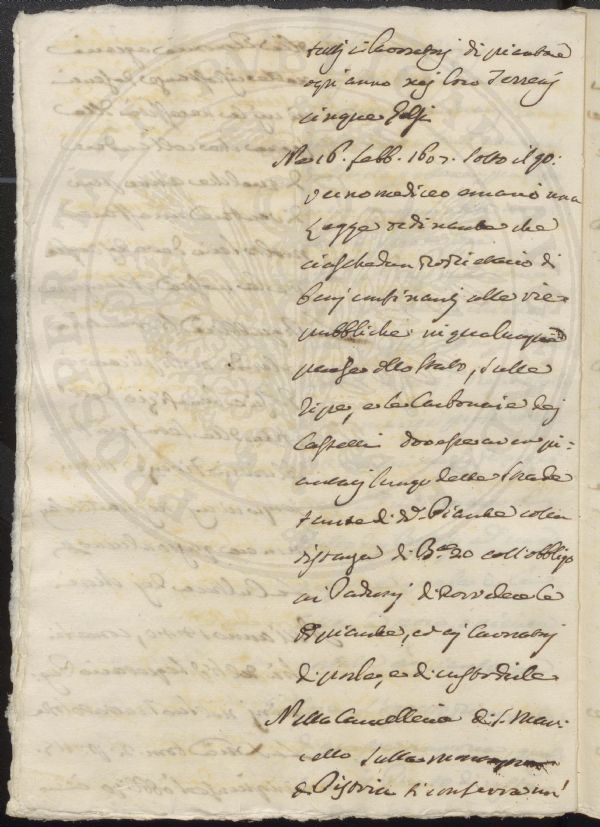 tutti i lavoratori di piantare
ogni anno nei loro Terreni
cinque Gelsi
Ne 16. febb. 1607. sotto il go:
verno mediceo emanò una
Legge ordinante che
ciaschedun Proprietario di
beni confinanti alle vie
pubbliche in qualunque
parte dello Stato, sulle
ripe, e le Carbonaie dei
Castelli dovesse aver pi:
antati lungo delle strade
tante di d.e Piante colla
distanza di B.a 20 coll'obbligo
ai Padroni di provvedere le
piante, ed ai lavoratori
di porle, e di custodirle
Nella Cancelleria di S. Mar:
cello sulla
di Pistoia si conserva un'